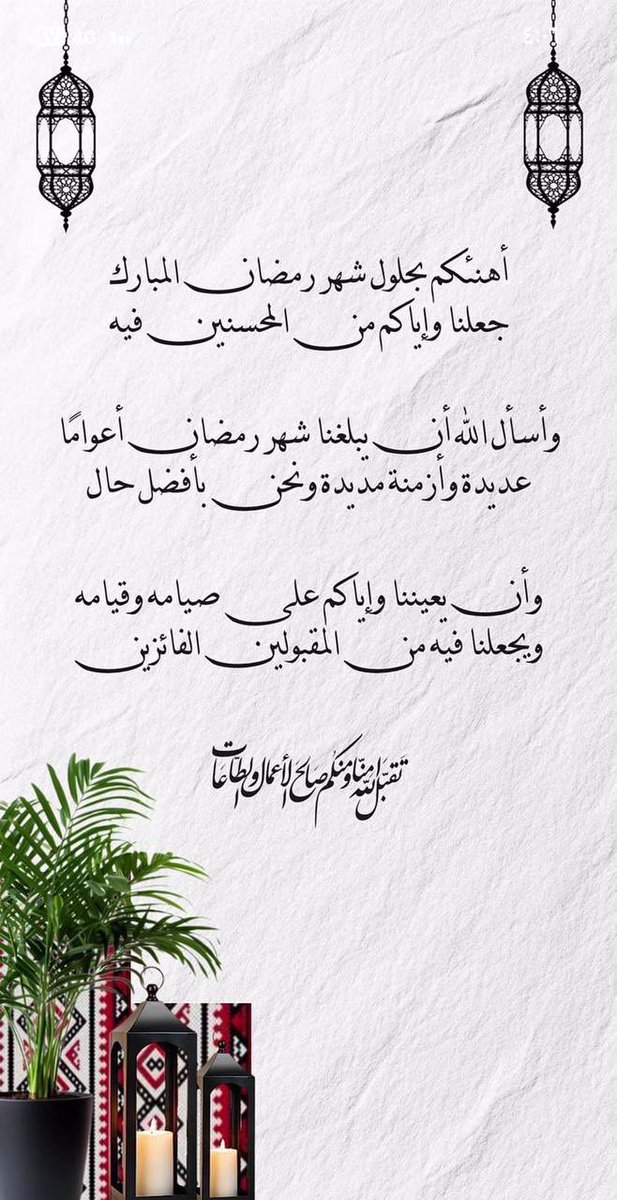 أهنئكم بحلول شهر رمضان المبارك
جعلنا وإياكم من المحسنين فيه
وأسأل الله أن يبلغنا شهر رمضان أعوامًا
عديدة وأزمنة مديدة ونحن بأفضل حال
وأن يعيننا وإياكم على صيامه وقيامه
ويجعلنا فيه من المقبولين الفائزين
تقبّل الله منّا ومنكم صالح الأعمال والطّاعات